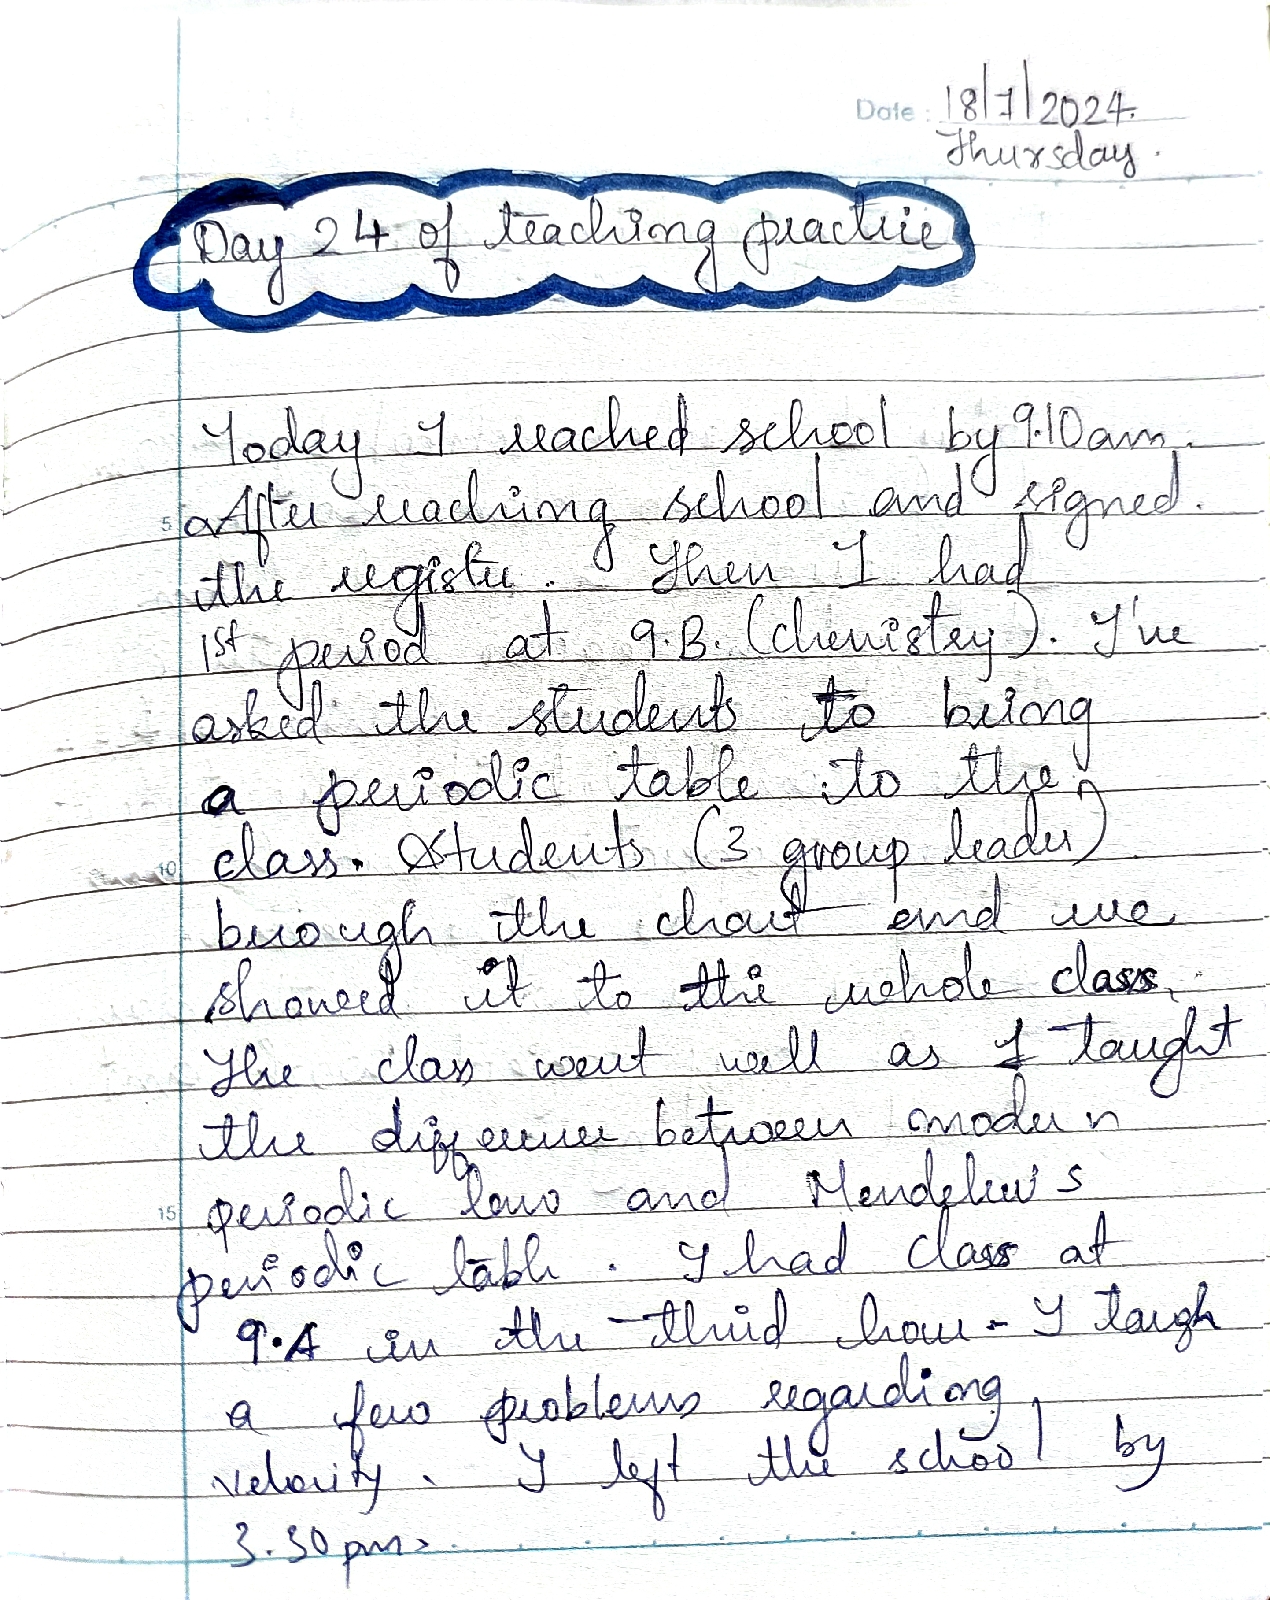 Date : 18/7/2024.
Thursday.
Day 24 of teaching practice
Today I reached school by 9.10am.
5 After reaching school and signed.
the register. Then I had
1st period at 9.B. (chemistry). I've
asked the students to bring
a periodic table to the
10 class. Students (3 group leader)
brough the chart and we
showed it to the whole class.
The class went well as I taught
the difference between modern
15 periodic law and Mendelev's
periodic table. I had class at
9.A in the third hour. I taugh
a few problems regarding
velocity. I left the school by
3.30pm.